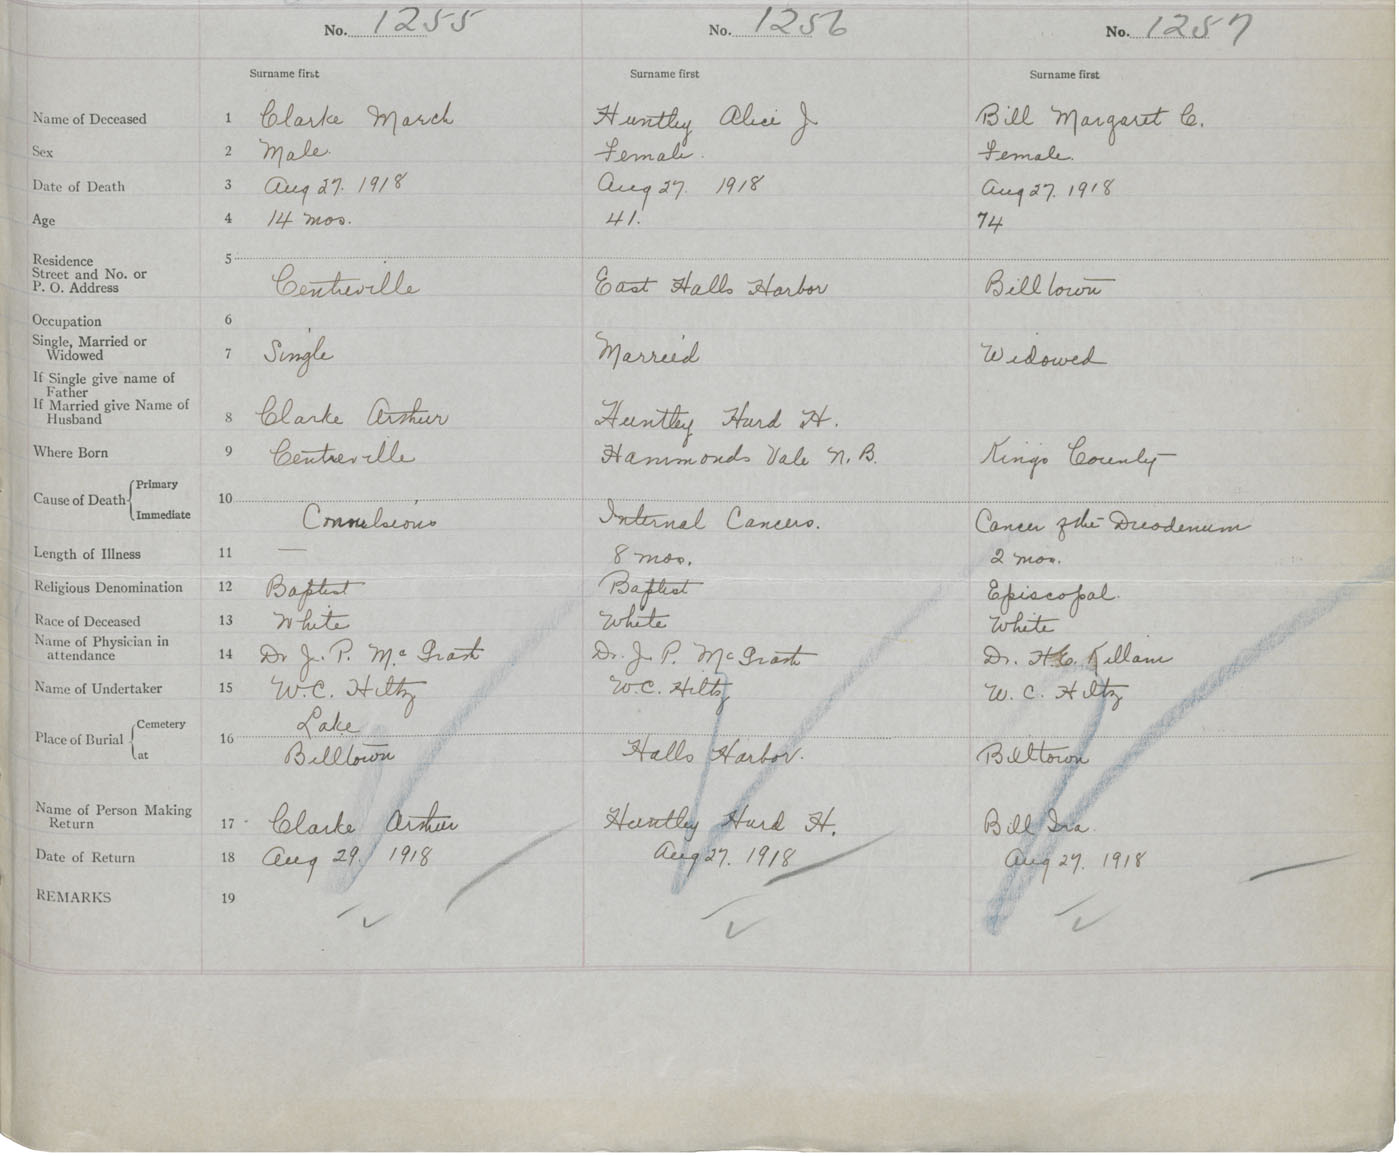 No. 1255 No. 1256 No. 1257
Surname first Surname first Surname first
Name of Deceased 1 Clarke March Huntley Alice J Bill Margaret C.
Sex 2 Male. Female. Female.
Date of Death 3 Aug 27. 1918 Aug 27. 1918 Aug 27. 1918
Age 4 14 mos. 41. 74
Residence 5
Street and No. or
P. O. Address Centreville East Halls Harbor Billtown
Occupation 6
Single, Married or
Widowed 7 Single Married Widowed
If Single give name of
Father
If Married give Name of
Husband 8 Clarke Arthur Huntley Hurd H.
Where Born 9 Centreville Hammonds Vale N. B. Kings County
Cause of Death Primary 10
Immediate Convulsions Internal Cancers. Cancer of the Duodenum
Length of Illness 11 — 8 mos. 2 mos.
Religious Denomination 12 Baptist Baptist Episcopal.
Race of Deceased 13 White White White
Name of Physician in
attendance 14 Dr J. P. McGrath Dr. J. P. McGrath Dr. H.E. Killam
Name of Undertaker 15 W. C. Hiltz W. C. Hiltz W. C. Hiltz
Place of Burial Cemetery 16 Lake
at Billtown Halls Harbor. Billtown
Name of Person Making
Return 17 Clarke Arthur Huntley Hurd H. Bill Ira.
Date of Return 18 Aug 29. 1918 Aug 27. 1918 Aug 27. 1918
REMARKS 19